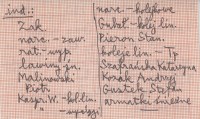 ind.:
Zak.
narc. – zaw.
rat. – wyp.
lawiny jn.
Malinowski
Piotr
Kasper W. – kol. lin.
narc. – hotelowe
Gubał. – kolej lin.
Pieron Stan.
koleje lin. – Tp
Szafrańska Katarzyna
Kozak Andrzej
Gustek Stefan
armatki śnieżne